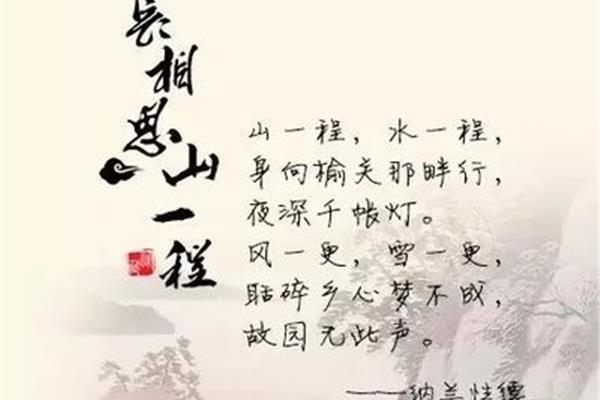 长相思
山一程
山一程，水一程，
身向榆关那畔行，
夜深千帐灯。
风一更，雪一更，
聒碎乡心梦不成，
故园无此声。
——纳兰性德